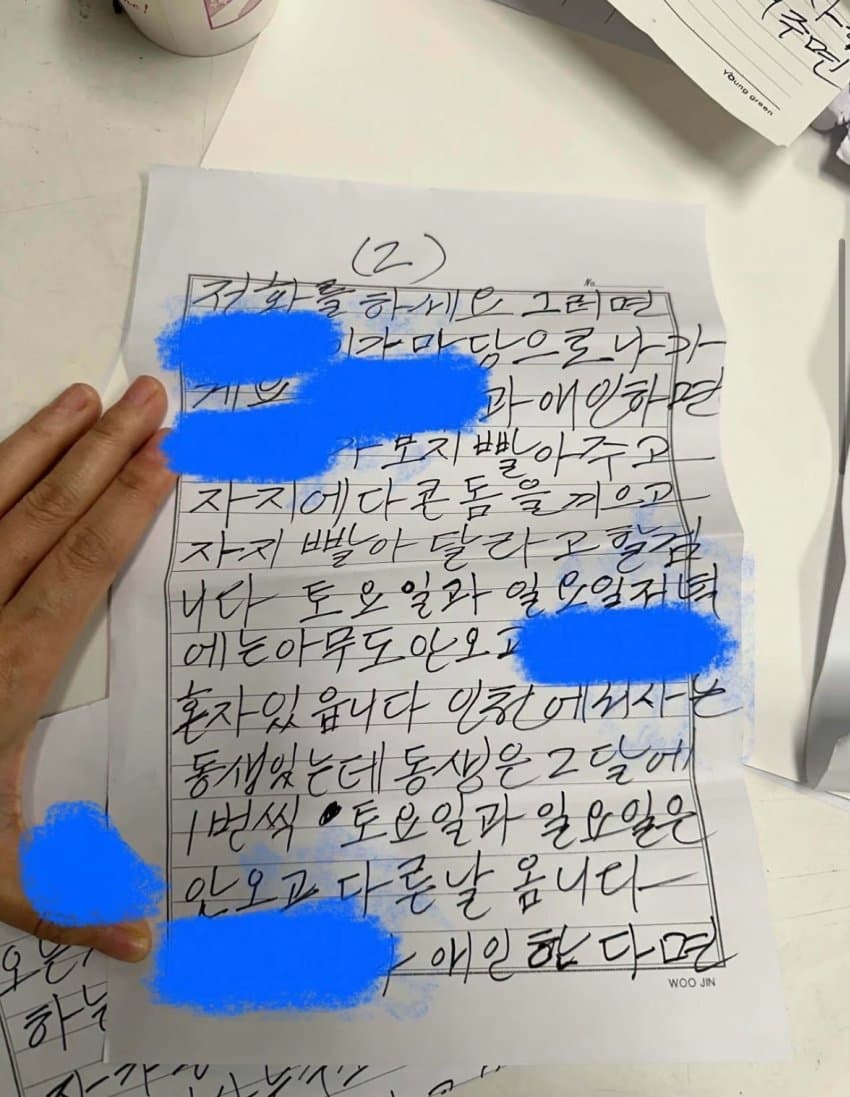 young green
(2)
No.
저화를 하세요 그러면
가 마당으로 나가
게요 과 애인하면
가 보지 빨아주고
자지에다 콘돔을 끼으고
자지 빨아 달라고 할겁
니다 토요일과 일요일저녁
에는 아무도 안오고
혼자있읍니다 인천에서 사는
동생있는데 동생은 2달에
1번씩 토요일과 일요일은
안오고 다른날 옵니다
애인한다면
WOO JIN
하는